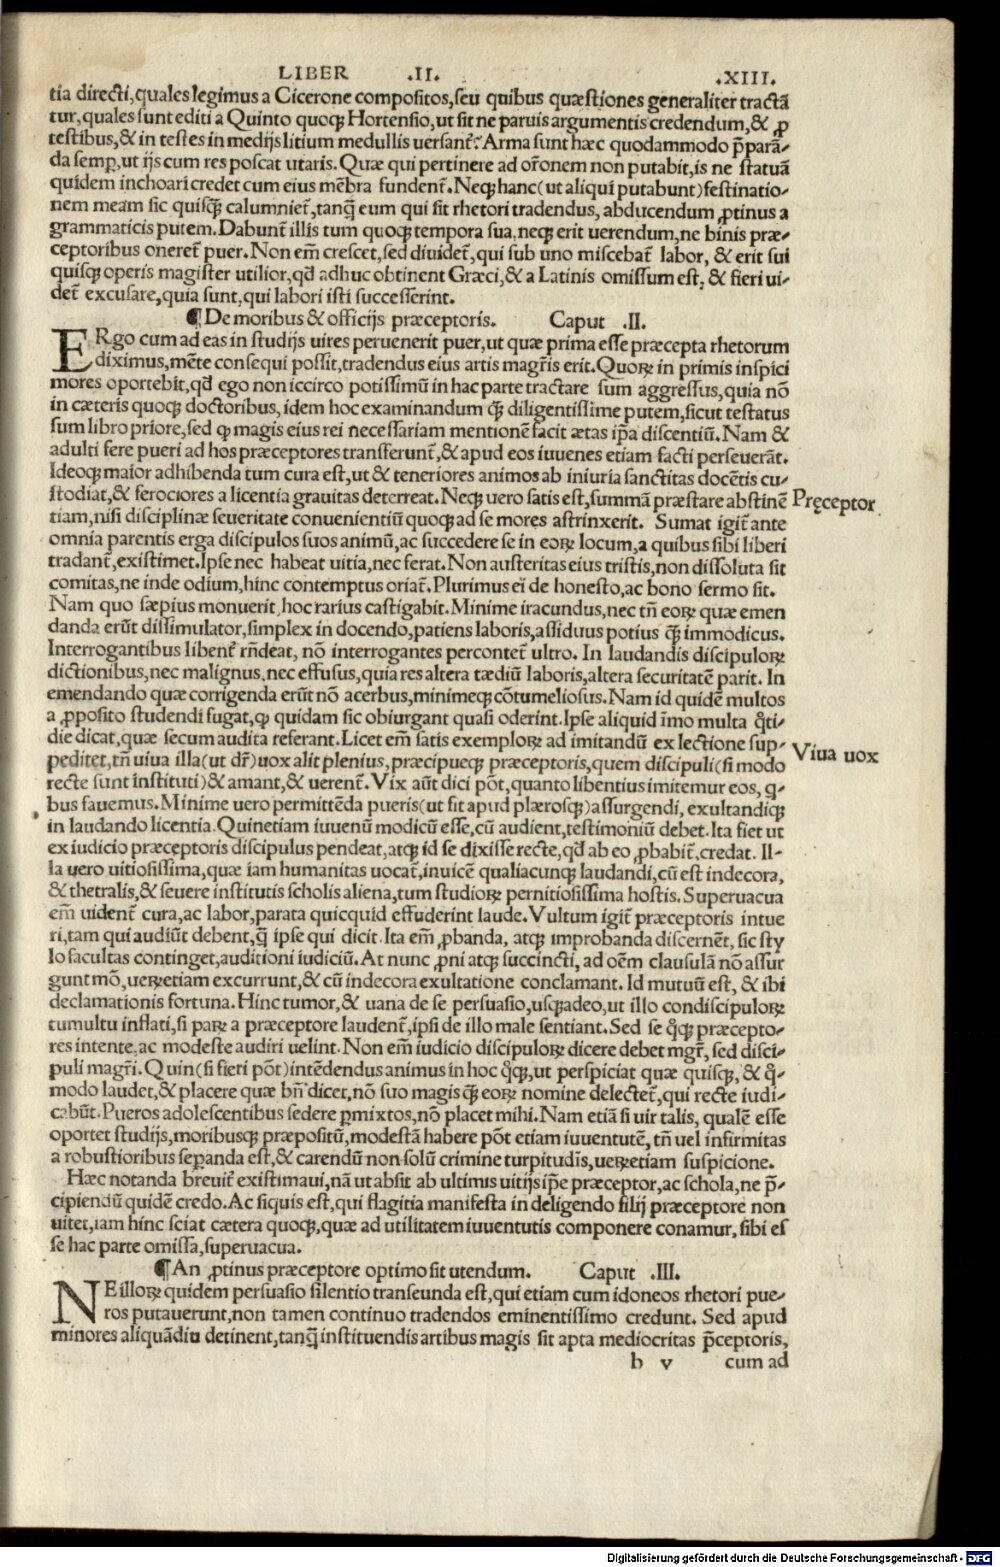 LIBER .II. .XIII.
tia directi,quales legimus a Cicerone compositos,seu quibus quæstiones generaliter tractã
tur,quales sunt editi a Quinto quoqꝫ Hortensio,ut sit ne paruis argumentis credendum,& ꝓ
testibus,& in testes in medijs litium medullis uersant᷑? Arma sunt hæc quodammodo p̄parã-
da semꝑ,ut ijs cum res poscat utaris. Quæ qui pertinere ad or̄onem non putabit,is ne statuã
quidem inchoari credet cum eius mẽbra fundent᷑. Neqꝫ hanc(ut aliqui putabunt)festinatio-
nem meam sic quisꝗ̃ calumniet᷑,tanꝗ̃ eum qui sit rhetori tradendus, abducendum ꝓtinus a
grammaticis putem. Dabunt᷑ illis tum quoqꝫ tempora sua,neqꝫ erit uerendum,ne binis præ-
ceptoribus oneret᷑ puer. Non em̃ crescet,sed diuidet᷑,qui sub uno miscebat᷑ labor, & erit sui
quisqꝫ operis magister utilior,qđ adhuc obtinent Græci,& a Latinis omissum est, & fieri ui-
det᷑ excusare,quia sunt,qui labori isti successerint.
¶ De moribus & officijs præceptoris. Caput .II.
ERgo cum ad eas in studijs uires peruenerit puer,ut quæ prima esse præcepta rhetorum
diximus,mẽte consequi possit,tradendus eius artis magr̃is erit. Quoꝝ in primis inspici
mores oportebit,qđ ego non iccirco potissimũ in hac parte tractare sum aggressus,quia nõ
in cæteris quoqꝫ doctoribus,idem hoc examinandum ꝗ̃ diligentissime putem,sicut testatus
sum libro priore,sed ꝙ magis eius rei necessariam mentionẽ facit ætas ip̃a discentiũ. Nam &
adulti fere pueri ad hos præceptores transferunt᷑,& apud eos iuuenes etiam facti perseuerãt.
Ideoqꝫ maior adhibenda tum cura est,ut & teneriores animos ab iniuria sanctitas docẽtis cu-
stodiat,& ferociores a licentia grauitas deterreat. Neqꝫ uero satis est,summã præstare abstinẽ
Pręceptor
tiam,nisi disciplinæ seueritate conuenientiũ quoqꝫ ad se mores astrinxerit. Sumat igit᷑ ante
omnia parentis erga discipulos suos animũ,ac succedere se in eoꝝ locum,a quibus sibi liberi
tradant᷑,existimet. Ipse nec habeat uitia,nec ferat. Non austeritas eius tristis,non dissoluta sit
comitas,ne inde odium,hinc contemptus oriat᷑. Plurimus ei de honesto,ac bono sermo sit.
Nam quo sæpius monuerit,hoc rarius castigabit. Minime iracundus,nec tñ eoꝝ quæ emen
danda erũt dissimulator,simplex in docendo,patiens laboris,assiduus potius ꝗ̃ immodicus.
Interrogantibus libent᷑ rñdeat, nõ interrogantes percontet᷑ ultro. In laudandis discipuloꝝ
dictionibus,nec malignus,nec effusus,quia res altera tædiũ laboris,altera securitatẽ parit. In
emendando quæ corrigenda erũt nõ acerbus,minimeqꝫ cõtumeliosus. Nam id quidẽ multos
a ꝓposito studendi fugat,ꝙ quidam sic obiurgant quasi oderint. Ipse aliquid īmo multa q̊ti-
die dicat,quæ secum audita referant. Licet em̃ satis exemploꝝ ad imitandũ ex lectione sup-
Viua uox
peditet,tñ uiua illa(ut dr̃)uox alit plenius,præcipueqꝫ præceptoris,quem discipuli(si modo
recte sunt instituti)& amant,& uerent᷑. Vix aũt dici põt,quanto libentius imitemur eos, ꝗ-
bus fauemus. Minime uero permittẽda pueris(ut fit apud plærosqꝫ)assurgendi, exultandiqꝫ
in laudando licentia. Quinetiam iuuenũ modicũ esse,cũ audient,testimoniũ debet. Ita fiet ut
ex iudicio præceptoris discipulus pendeat,atqꝫ id se dixisse recte,qđ ab eo ꝓbabit᷑,credat. Il-
la uero uitiosissima,quæ iam humanitas uocat᷑,inuicẽ qualiacunqꝫ laudandi,cũ est indecora,
& thetralis,& seuere institutis scholis aliena,tum studioꝝ pernitiosissima hostis. Superuacua
em̃ uident᷑ cura,ac labor,parata quicquid effuderint laude. Vultum igit᷑ præceptoris intue
ri,tam qui audiũt debent,ꝗ̃ ipse qui dicit. Ita em̃ ꝓbanda, atqꝫ improbanda discernẽt, sic sty
lo facultas continget,auditioni iudiciũ. At nunc ꝓni atqꝫ succincti, ad oẽm clausulã nõ assur
gunt mõ,ueꝝetiam excurrunt,& cũ indecora exultatione conclamant. Id mutuũ est, & ibi
declamationis fortuna. Hinc tumor,& uana de se persuasio,usqꝫadeo,ut illo condiscipuloꝝ
tumultu inflati,si paꝝ a præceptore laudent᷑,ipsi de illo male sentiant. Sed se q̊qꝫ præcepto-
res intente,ac modeste audiri uelint. Non em̃ iudicio discipuloꝝ dicere debet mgr̃, sed disci-
puli magr̃i. Quin(si fieri põt)intẽdendus animus in hoc q̊qꝫ,ut perspiciat quæ quisqꝫ, & q̊-
modo laudet,& placere quæ bñ dicet,nõ suo magis ꝗ̃ eoꝝ nomine delectet᷑,qui recte iudi-
cabũt. Pueros adolescentibus sedere ꝑmixtos,nõ placet mihi. Nam etiã si uir talis, qualẽ esse
oportet studijs,moribusqꝫ præpositũ,modestã habere põt etiam iuuentutẽ,tñ uel infirmitas
a robustioribus seꝑanda est,& carendũ non solũ crimine turpitudĩs,ueꝝetiam suspicione.
Hæc notanda breuit᷑ existimaui,nã ut absit ab ultimis uitijs ip̃e præceptor,ac schola,ne p̄-
cipiendũ quidẽ credo. Ac siquis est,qui flagitia manifesta in deligendo filij præceptore non
uitet,iam hinc sciat cætera quoqꝫ,quæ ad utilitatem iuuentutis componere conamur,sibi es
se hac parte omissa,superuacua.
¶ An ꝓtinus præceptore optimo sit utendum. Caput .III.
NE illoꝝ quidem persuasio silentio transeunda est,qui etiam cum idoneos rhetori pue-
ros putauerunt,non tamen continuo tradendos eminentissimo credunt. Sed apud
minores aliquãdiu detinent,tanꝗ̃ instituendis artibus magis sit apta mediocritas p̄ceptoris,
b v cum ad
Digitalisierung gefördert durch die Deutsche Forschungsgemeinschaft - DFG